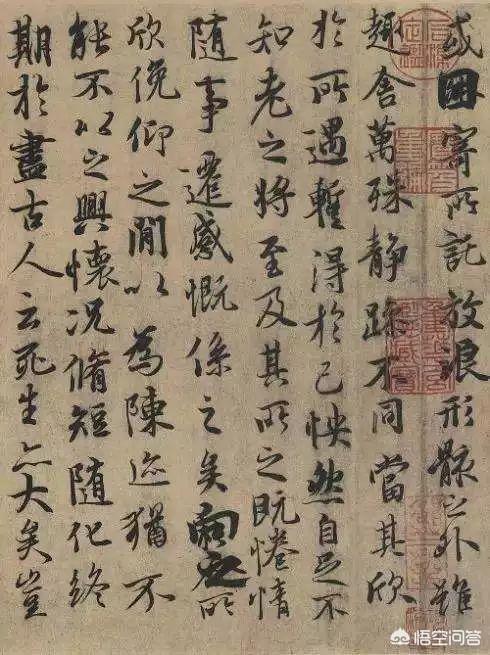 或因寄所託放浪形骸之外雖
趣舍萬殊静躁不同當其欣
於所遇蹔得於己怏然自足不
知老之將至及其所之既惓情
随事遷感慨係之矣向之所
欣俛仰之閒以為陳迹猶不
能不以之興懷況脩短随化終
期於盡古人云死生亦大矣豈
悟空问答